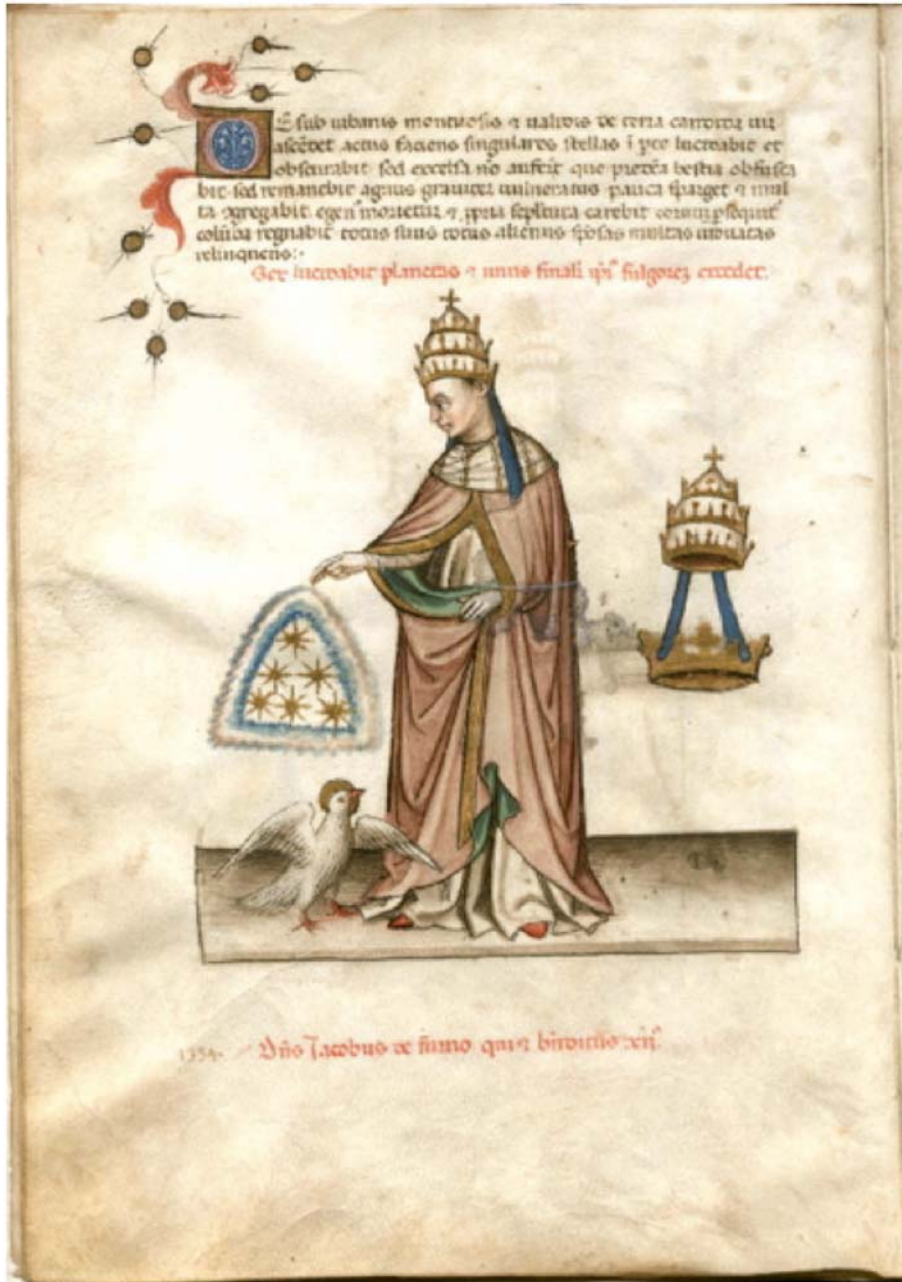 E sub urbanis montuosis ⁊ ualidis de terra carrorū
ascēdet actus faciens singulares stellas ī ꝑte lucidabit et
obscurabit sed excelsa nō auferet que preterea bestia obfusca
bit sed remanebit agnus grauiter uulneratus pauca sparget ⁊ mul
ta agregabit egenꝰ morietur ⁊ ꝓpria sepultura carebit
colūba regnabit totus suus totus alienus spōsas multas uiduatas
relinquens:·
Sex lucidabit planetas ⁊ unus finali fulgorez excedet.
1334· Dn̄s Jacobus de furno qui ⁊ bn̄dictus xij⁹